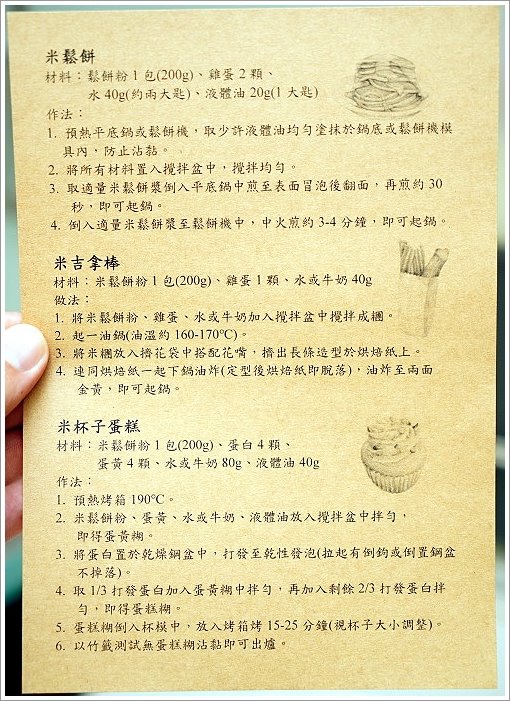 米鬆餅
材料：鬆餅粉 1 包(200g)、雞蛋 2 顆、
水 40g(約兩大匙)、液體油 20g(1 大匙)
作法：
1. 預熱平底鍋或鬆餅機，取少許液體油均勻塗抹於鍋底或鬆餅機模
具內，防止沾黏。
2. 將所有材料置入攪拌盆中，攪拌均勻。
3. 取適量米鬆餅漿倒入平底鍋中煎至表面冒泡後翻面，再煎約 30
秒，即可起鍋。
4. 倒入適量米鬆餅漿至鬆餅機中，中火煎約 3-4 分鐘，即可起鍋。
米吉拿棒
材料：米鬆餅粉 1 包(200g)、雞蛋 1 顆、水或牛奶 40g
做法：
1. 將米鬆餅粉、雞蛋、水或牛奶加入攪拌盆中攪拌成糰。
2. 起一油鍋(油溫約 160-170℃)。
3. 將米糰放入擠花袋中搭配花嘴，擠出長條造型於烘焙紙上。
4. 連同烘焙紙一起下鍋油炸(定型後烘焙紙即脫落)，油炸至兩面
金黃，即可起鍋。
米杯子蛋糕
材料：米鬆餅粉 1 包(200g)、蛋白 4 顆、
蛋黃 4 顆、水或牛奶 80g、液體油 40g
作法：
1. 預熱烤箱 190℃。
2. 米鬆餅粉、蛋黃、水或牛奶、液體油放入攪拌盆中拌勻，
即得蛋黃糊。
3. 將蛋白置於乾燥鋼盆中，打發至乾性發泡(拉起有倒鉤或倒置鋼盆
不掉落)。
4. 取 1/3 打發蛋白加入蛋黃糊中拌勻，再加入剩餘 2/3 打發蛋白拌
勻，即得蛋糕糊。
5. 蛋糕糊倒入杯模中，放入烤箱烤 15-25 分鐘(視杯子大小調整)。
6. 以竹籤測試無蛋糕糊沾黏即可出爐。